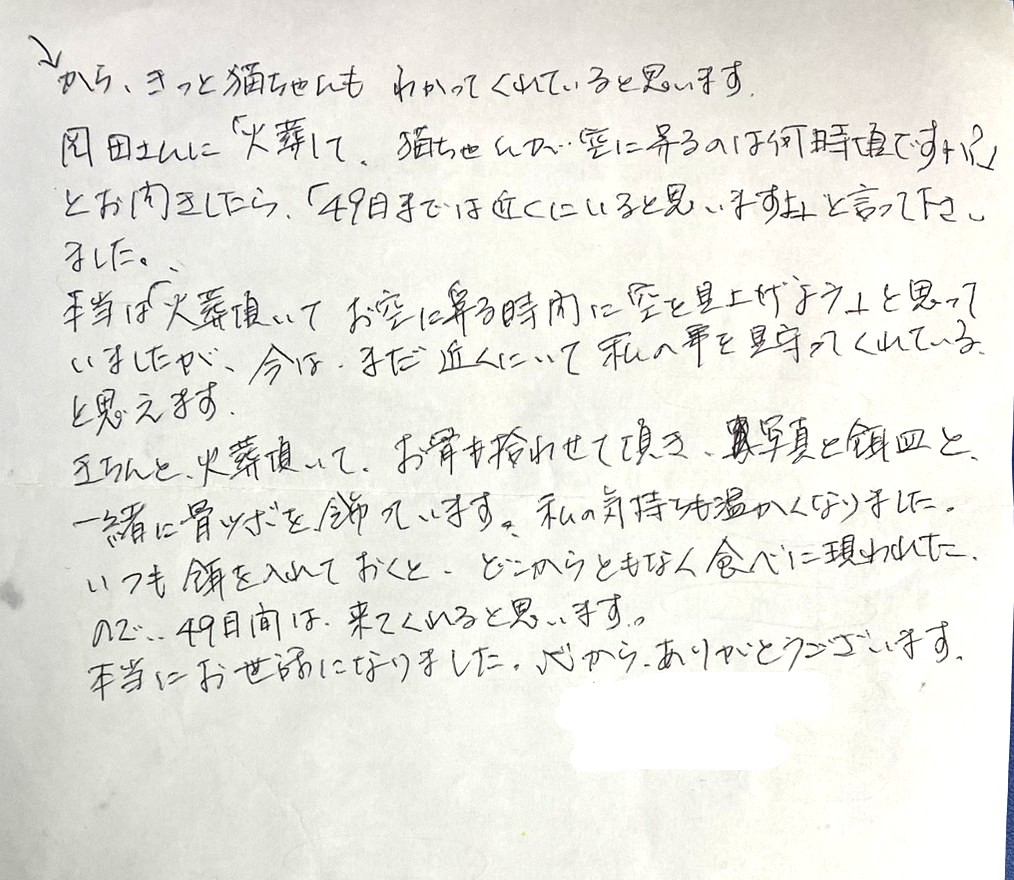 から、きっと猫ちゃんも わかってくれていると思います.
岡田さんに「火葬して、猫ちゃんが‥空に昇るのは何時頃ですか?」
とお聞きしたら、「49日までは近くにいると思いますよ」と言って下さい
ました。
本当は「火葬頂いて お空に昇る時間に空を見上げよう」と思って
いましたが、今は、まだ近くにいて私の事を見守ってくれている、
と思えます.
きちんと、火葬頂いて、お骨も拾わせて頂き、写真と餌皿と、
一緒に骨ツボを飾っています。私の気持ちも温かくなりました。
いつも餌を入れておくと、どこからともなく食べに現われた、
ので‥49日間は、来てくれると思います。
本当にお世話になりました。心から、ありがとうございます.